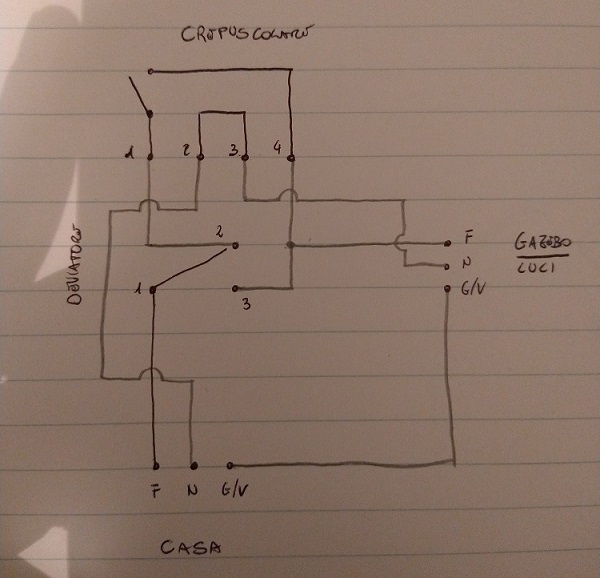 CREPUSCOLARE
1 2 3 4
DEVIATORE
2
1
3
F
N
G/V
GAZEBO
LUCI
F N G/V
CASA